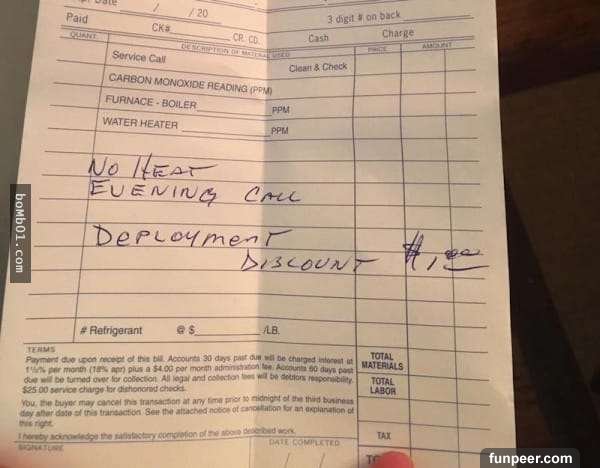 Date / / 20
3 digit # on back
Paid CK# CR. CD. Cash Charge
QUANT. DESCRIPTION OF MATERIAL USED PRICE AMOUNT
Service Call Clean & Check
CARBON MONOXIDE READING (PPM)
FURNACE - BOILER PPM
WATER HEATER PPM
NO HEAT
EVENING CALL
DEPLOYMENT
DISCOUNT $1.00
# Refrigerant @ $ /LB.
TERMS
Payment due upon receipt of this bill. Accounts 30 days past due will be charged interest at
1½% per month (18% apr) plus a $4.00 per month administration fee. Accounts 60 days past
due will be turned over for collection. All legal and collection fees will be debtors responsibility.
$25.00 service charge for dishonored checks.
You, the buyer may cancel this transaction at any time prior to midnight of the third business
day after date of this transaction. See the attached notice of cancellation for an explanation of
this right.
I hereby acknowledge the satisfactory completion of the above described work.
SIGNATURE DATE COMPLETED
/ /
TOTAL MATERIALS
TOTAL LABOR
TAX
boMb01.com
funpeer.com